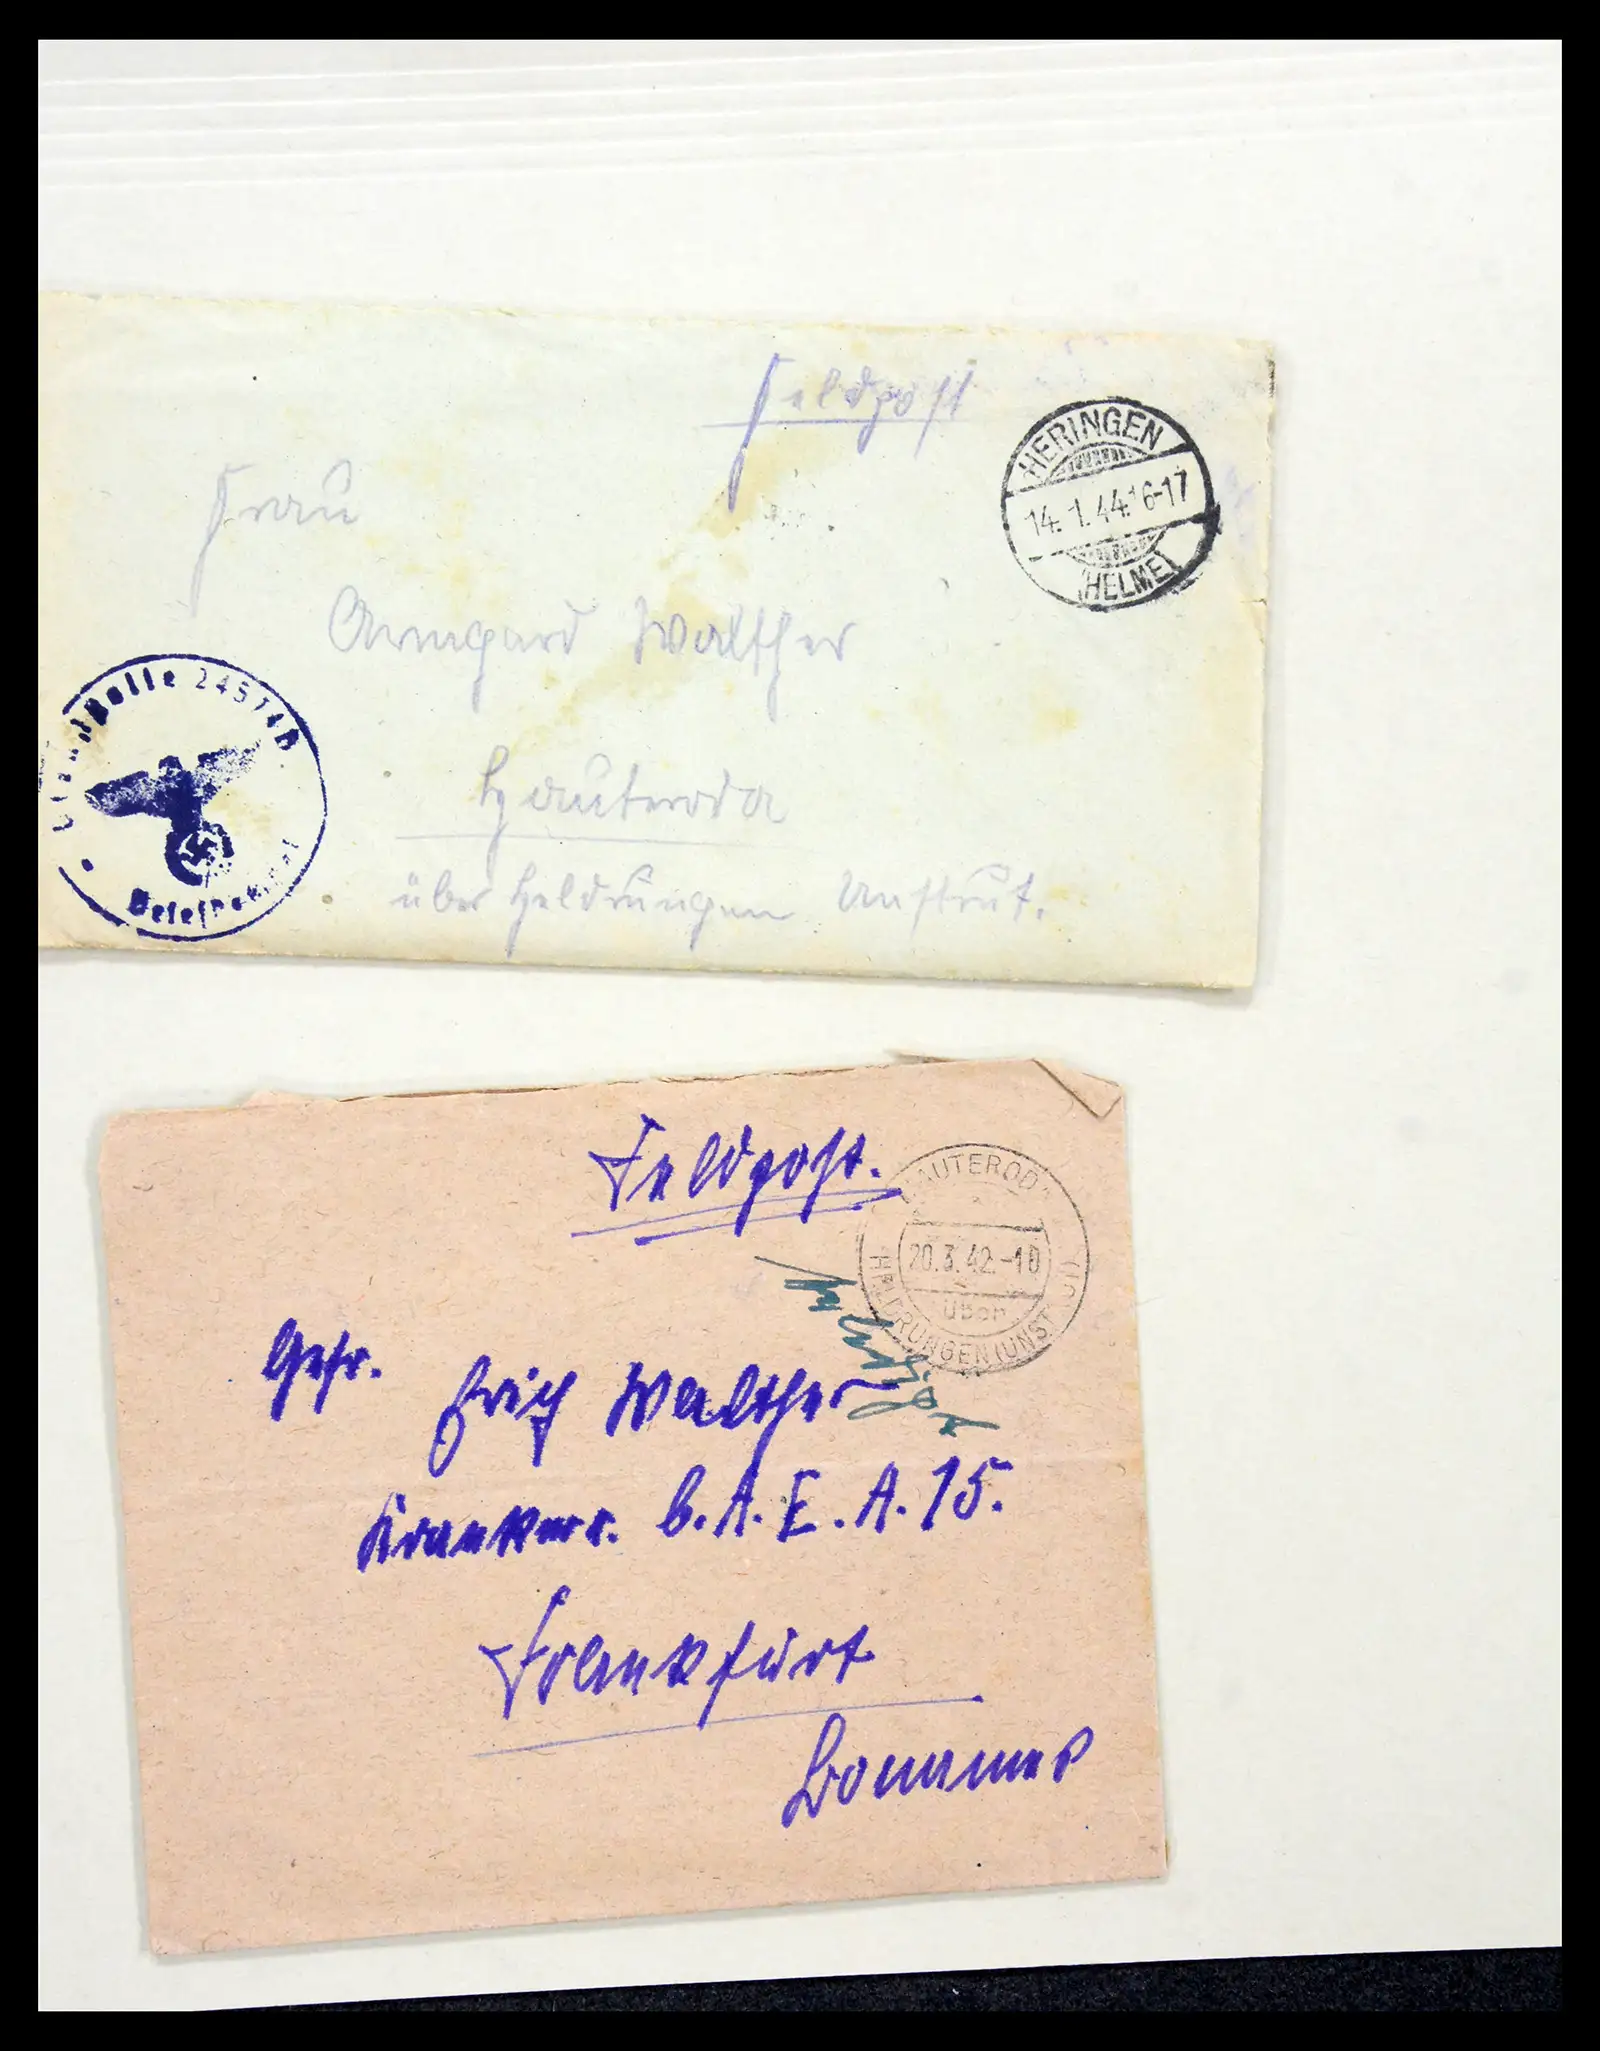 Feldpost
HERINGEN
14.1.44.16-17
(HELME)
Frau
Armgard Walther
Hauteroda
über Heldrungen Unstrut.
24574b
Briefstempel
Feldpost.
HAUTERODA
20.3.42.-10
über
HELDRUNGEN (UNSTRUT)
Gefr.
Erich Walther
b. A. E. A. 15.
Frankfurt
Bonames